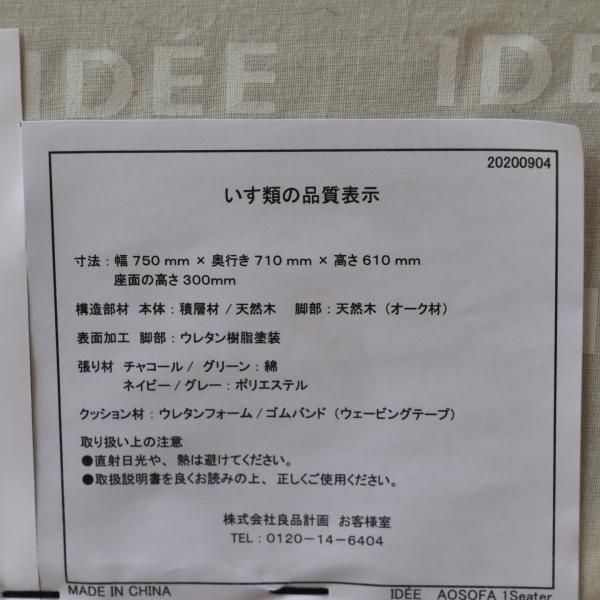 IDÉE
IDE
20200904
いす類の品質表示
寸法：幅 750 mm × 奥行き 710 mm × 高さ 610 mm
座面の高さ 300mm
構造部材 本体：積層材 / 天然木 脚部：天然木（オーク材）
表面加工 脚部：ウレタン樹脂塗装
張り材 チャコール / グリーン：綿
ネイビー / グレー：ポリエステル
クッション材：ウレタンフォーム / ゴムバンド（ウェービングテープ）
取り扱い上の注意
●直射日光や、熱は避けてください。
●取扱説明書を良くお読みの上、正しくご使用ください。
株式会社良品計画 お客様室
TEL：0120－14－6404
MADE IN CHINA
IDÉE AOSOFA 1Seater